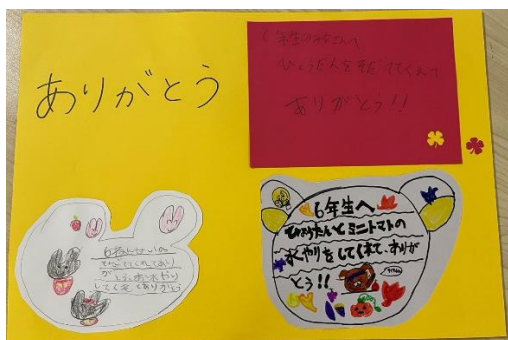 ありがとう
6年生のみなさん
ひょうたんをそだててくれて
ありがとう!!
6年生へ
ひょうたんとミニトマトの
水やりをしてくれて、ありが
とう!!
6ねんせいの
してくれてありがとう